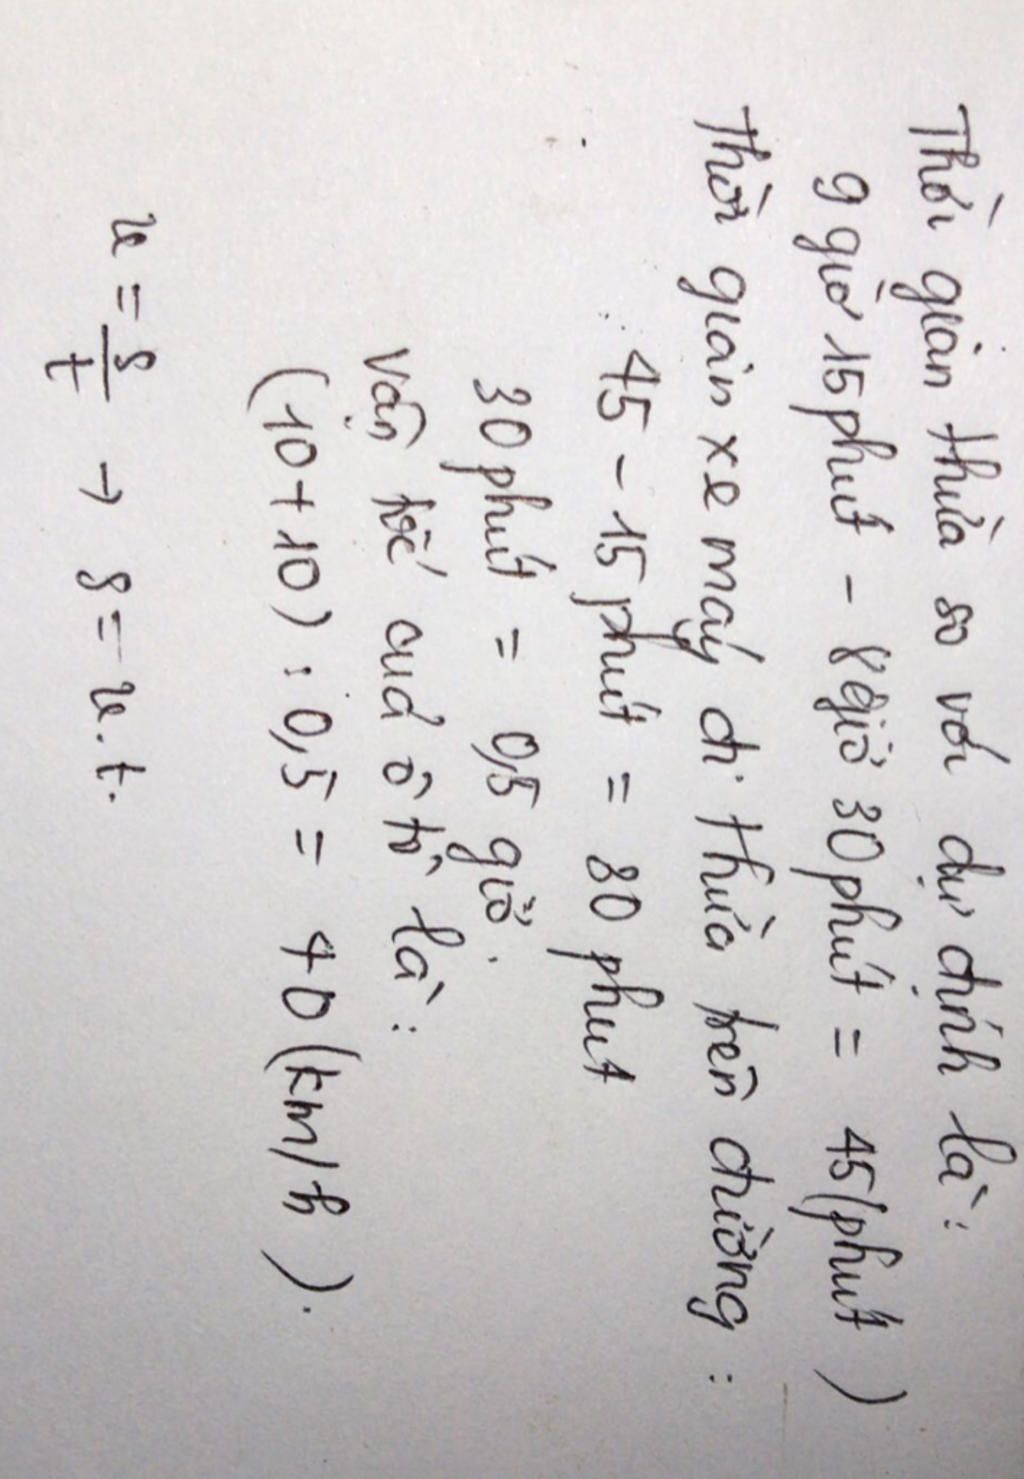 Thời gian thừa so với dự định là:
9 giờ 15 phút - 8 giờ 30 phút = 45 (phút)
Thời gian xe máy đi thừa trên đường:
45 - 15 phút = 30 phut
30 phút = 0,5 giờ.
Vận tốc của ô tô là:
(10 + 10) : 0,5 = 40 (km/h).
v = s/t → s = v.t.